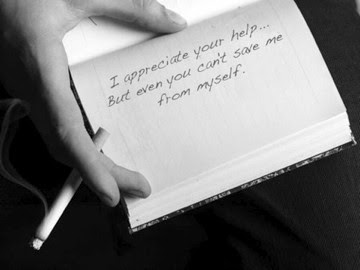 I appreciate your help...
But even you can't save me
from myself.